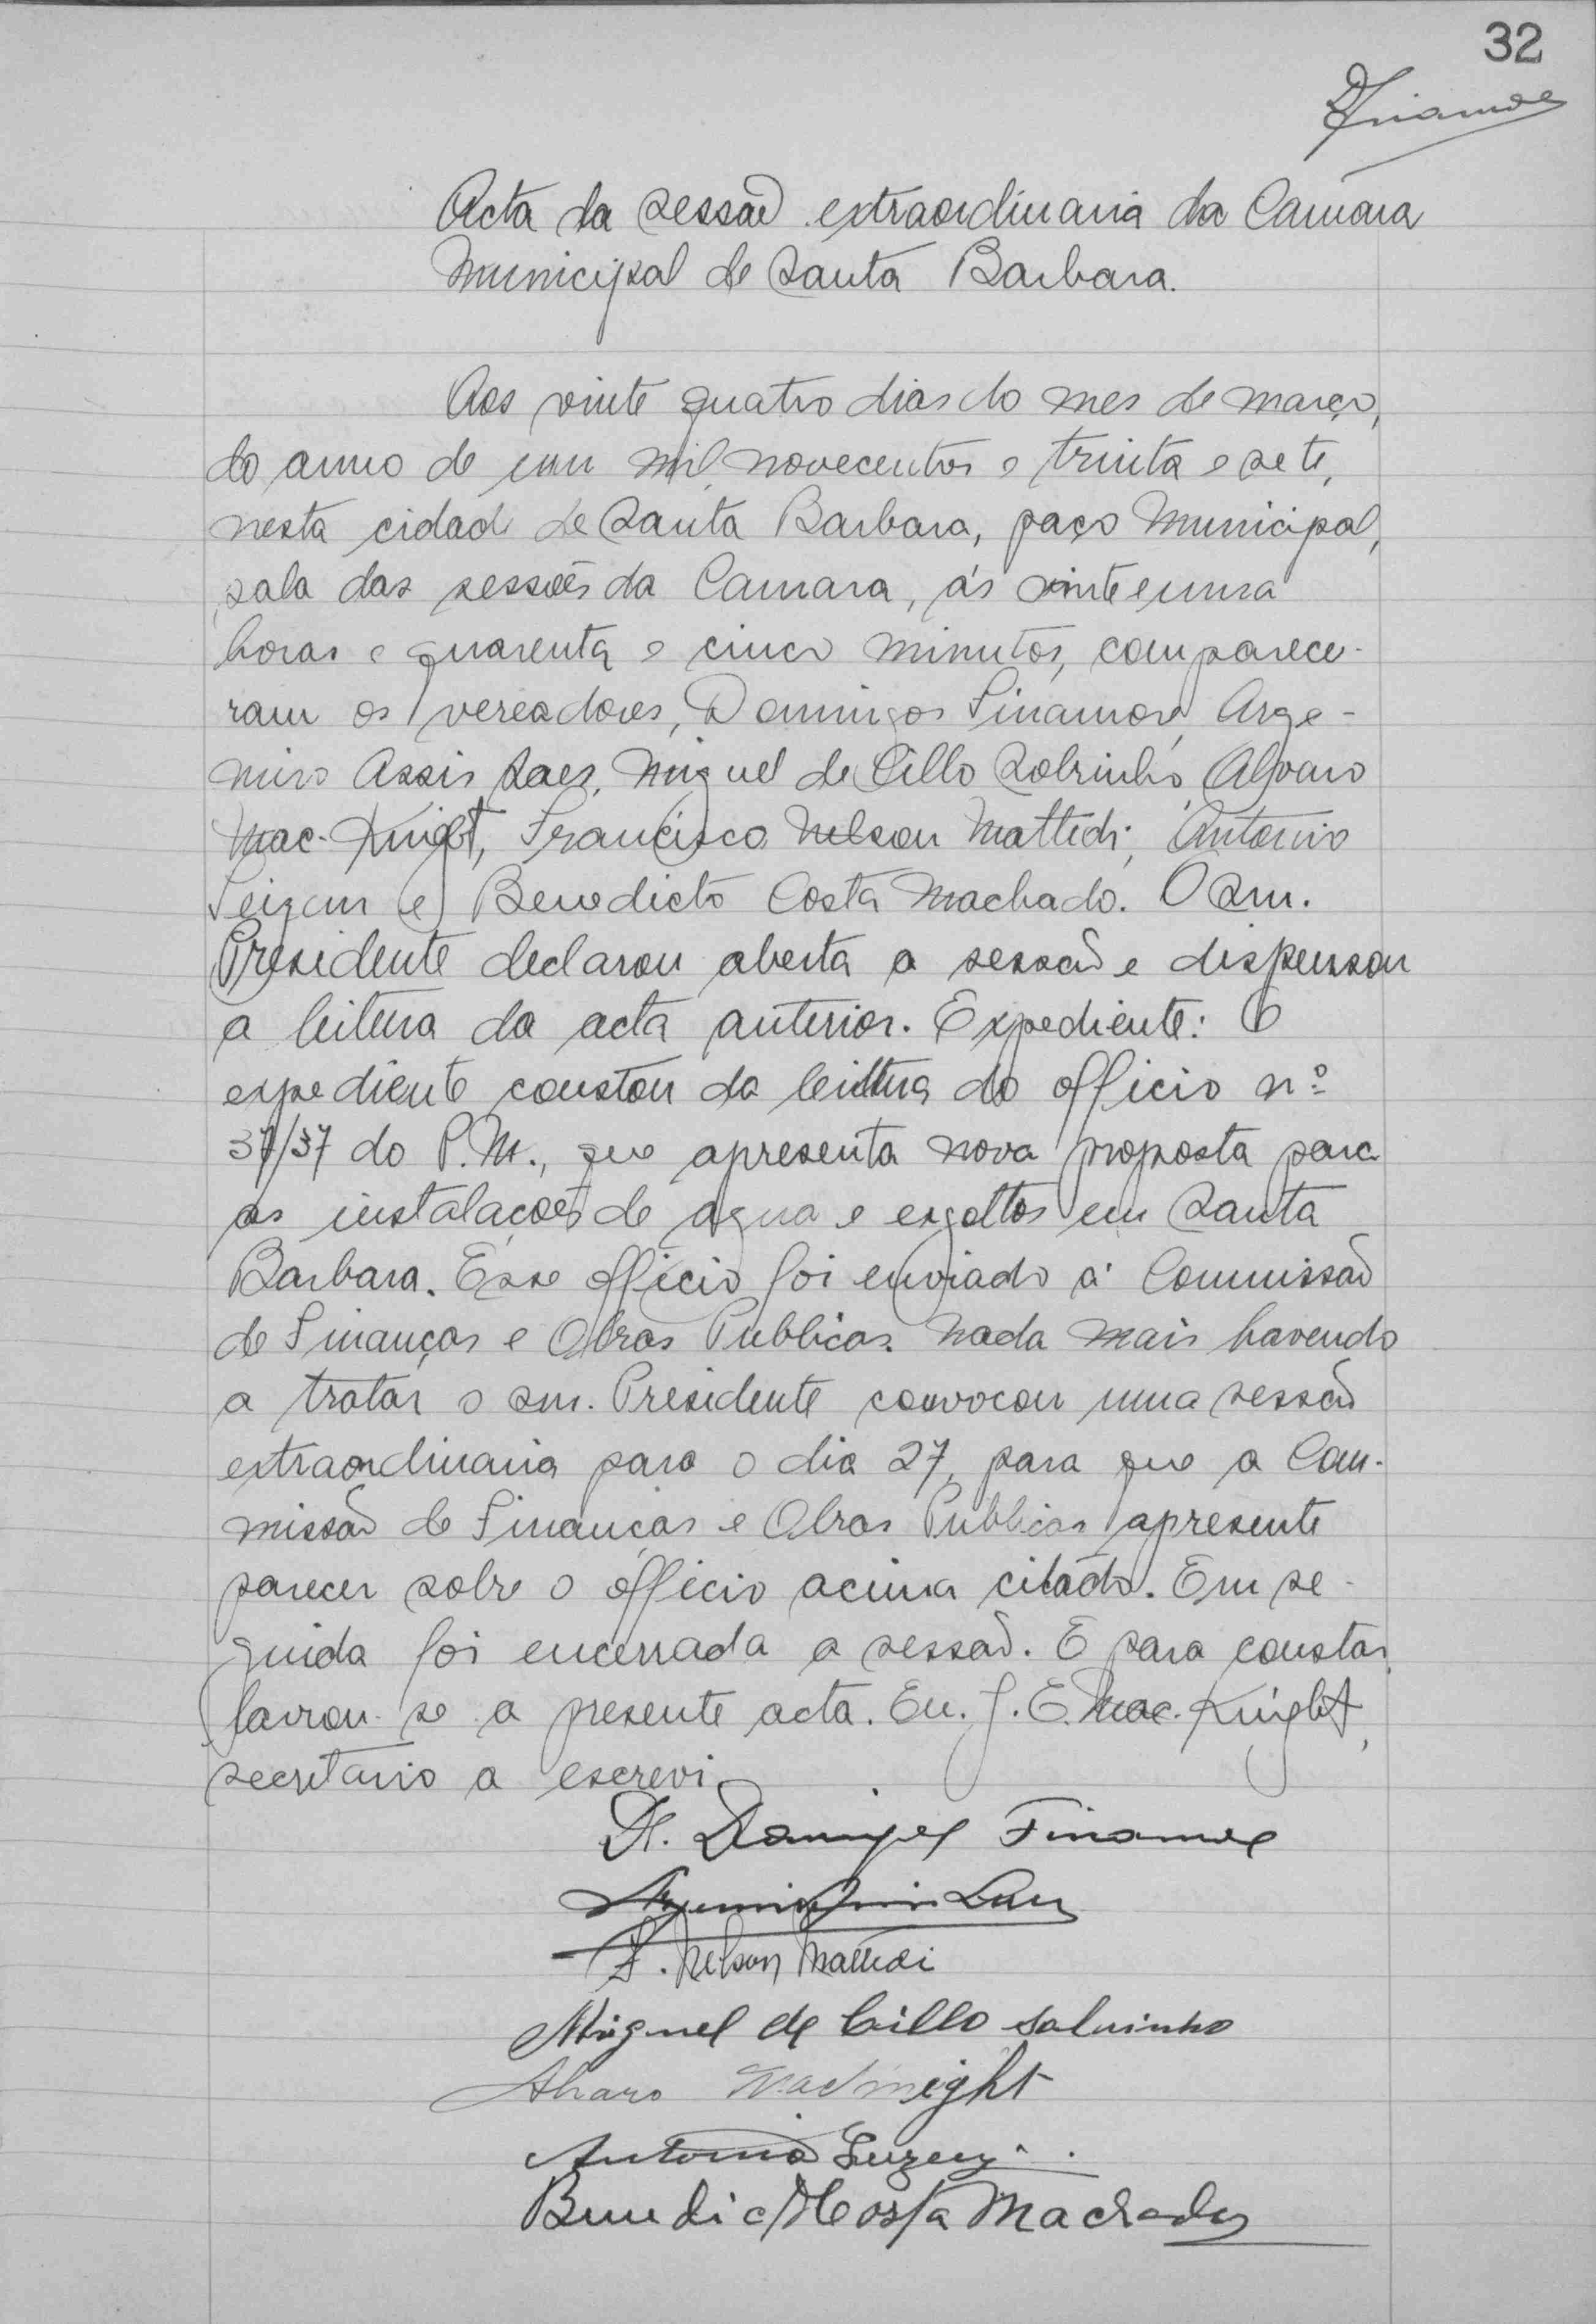 32
DFinamore
Acta da sessão extraordinaria da Camara
Municipal de Santa Barbara.
Aos vinte quatro dias do mes de março,
do anno de um mil novecentos e trinta e sete,
nesta cidade de Santa Barbara, paço Municipal,
sala das sessões da Camara, ás vinte e uma
horas e quarenta e cinco minutos, comparece-
ram os vereadores, Domingos Finamore, Arge-
miro Assis Saes, Miguel de Cillo Sobrinho, Alvaro
Mac-Knight, Francisco Nelson Mattedi, Antonio
e Benedicto Costa Machado. O snr.
Presidente declarou aberta a sessão e dispensou
a leitura da acta anterior. Expediente: O
expediente constou da leittura do officio nº
37/37 do P.M., que apresenta nova proposta para
as instalações de agua e exgottos em Santa
Barbara. Esse officio foi enviado á Commissão
de Finanças e Obras Publicas. Nada mais havendo
a tratar o snr. Presidente convocou uma sessão
extraordinaria para o dia 27, para que a Com-
missão de Finanças e Obras Publicas apresente
parecer sobre o officio acima citado. Em se-
guida foi encerrada a sessão. E para constar,
lavrou-se a presente acta. Eu. J. E. Mac-Knight,
secretario a escrevi.
Dr. Domingos Finamore
F. Nelson Mattedi
Miguel de Cillo Sobrinho
Alvaro MacKnight
Antonio
Benedicto Costa Machado